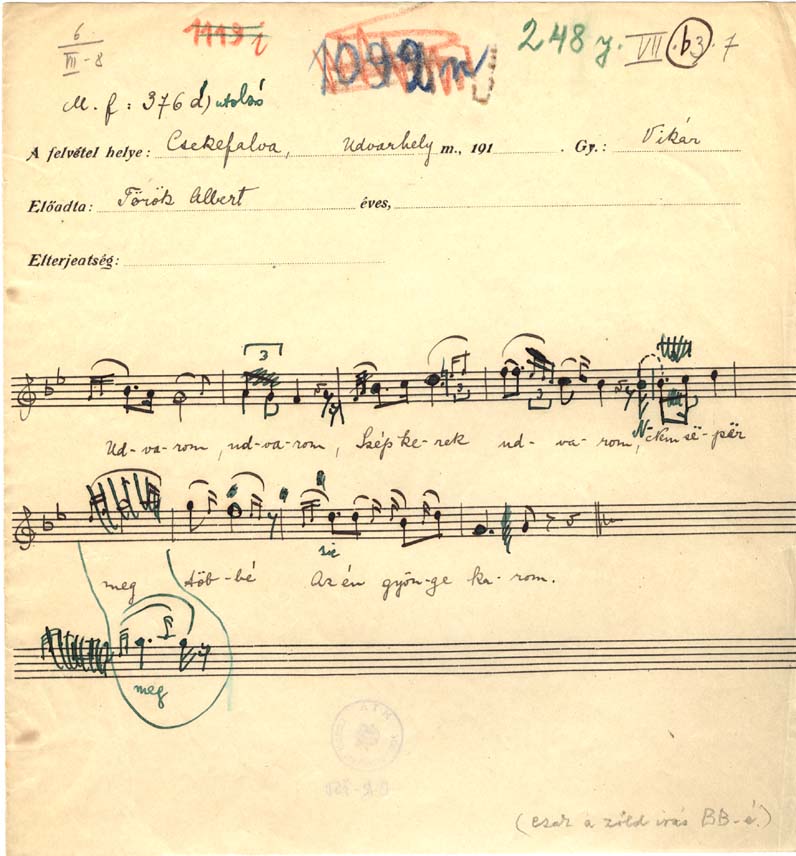 6
III-8
1113 i
1092
248 y. VII. b3. 7
M. f: 376 d) utolsó
A felvétel helye: Csekefalva, Udvarhely m., 191 . Gy.: Vikár
Előadta: Török Albert éves,
Elterjeatség:
3
3
Ud-va-rom, ud-va-rom, Szép ke-rek ud-va-rom, Nem së-për
meg töb-bé Az én gyön-ge ka-rom.
sic
meg
(csak a zöld írás BB-é.)